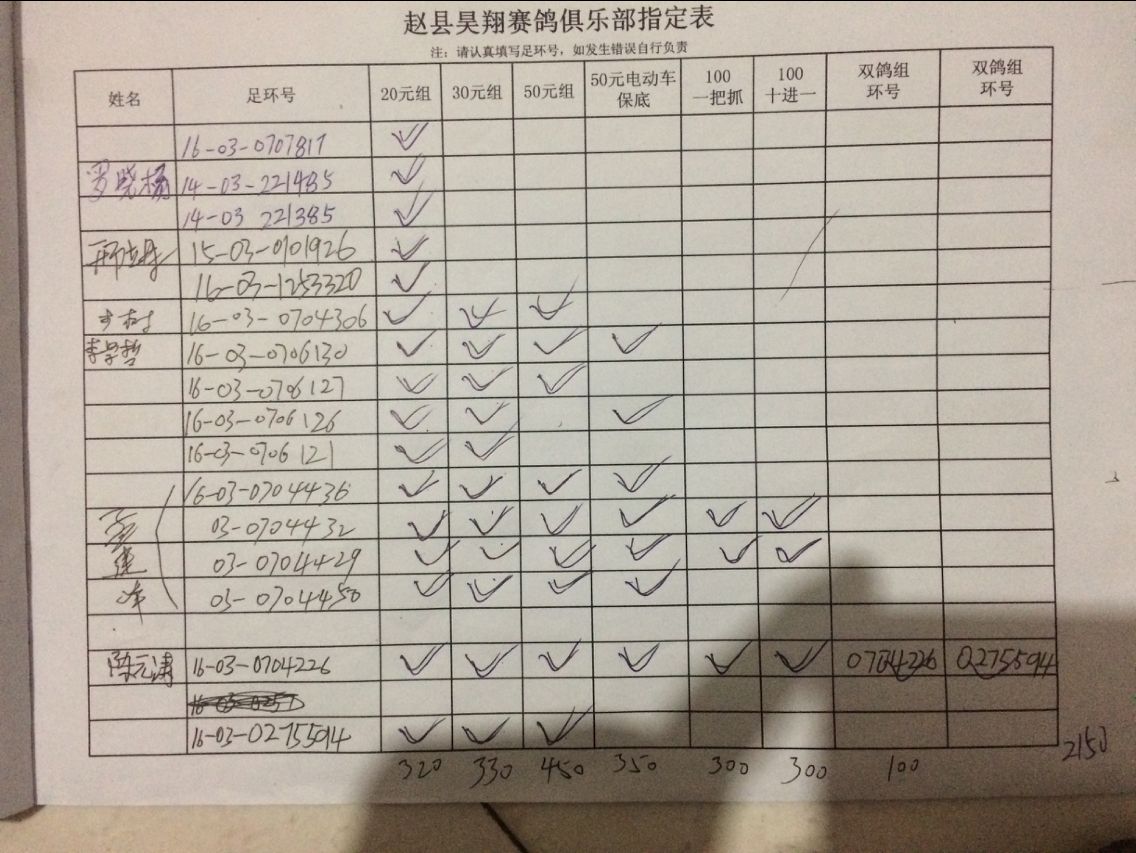 赵县昊翔赛鸽俱乐部指定表
注：请认真填写足环号，如发生错误自行负责
姓名 足环号 20元组 30元组 50元组 50元电动车保底 100一把抓 100十进一 双鸽组环号 双鸽组环号
16-03-0707817 ✓
14-03-221485 ✓
14-03 221385 ✓
15-03-0101926 ✓
16-03-1253320 ✓
16-03-0704306 ✓ ✓ ✓
李学哲 16-03-0706130 ✓ ✓ ✓ ✓
16-03-0706127 ✓ ✓ ✓
16-03-0706126 ✓ ✓ ✓
16-03-0706121 ✓ ✓
16-03-0704436 ✓ ✓ ✓ ✓
03-0704432 ✓ ✓ ✓ ✓ ✓ ✓
03-0704429 ✓ ✓ ✓ ✓ ✓ ✓
03-0704450 ✓ ✓ ✓ ✓
陈元涛 16-03-0704226 ✓ ✓ ✓ ✓ ✓ ✓ 0704226 0275594
16-03-0275594 ✓ ✓ ✓
320 330 450 350 300 300 100 2150